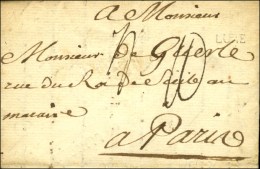 A Monsieur
Monsieur de Guerle
rue du Roi de Sicile au
marais
a Paris